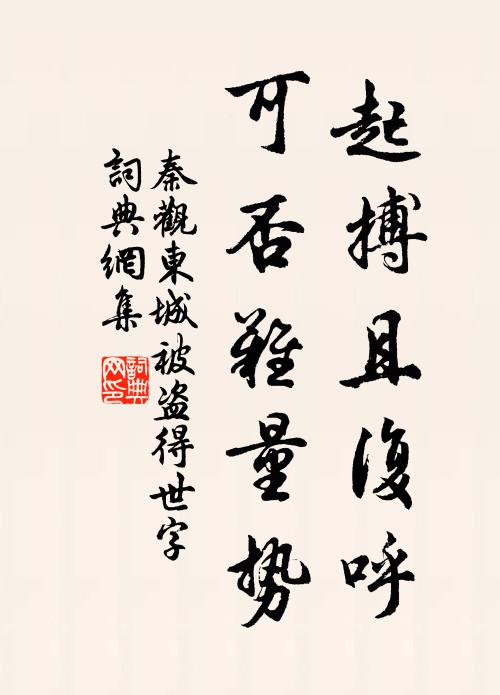 起搏且復呼
可否難量勢
秦觀東城被盗得世字
詞典網集
詞典网印